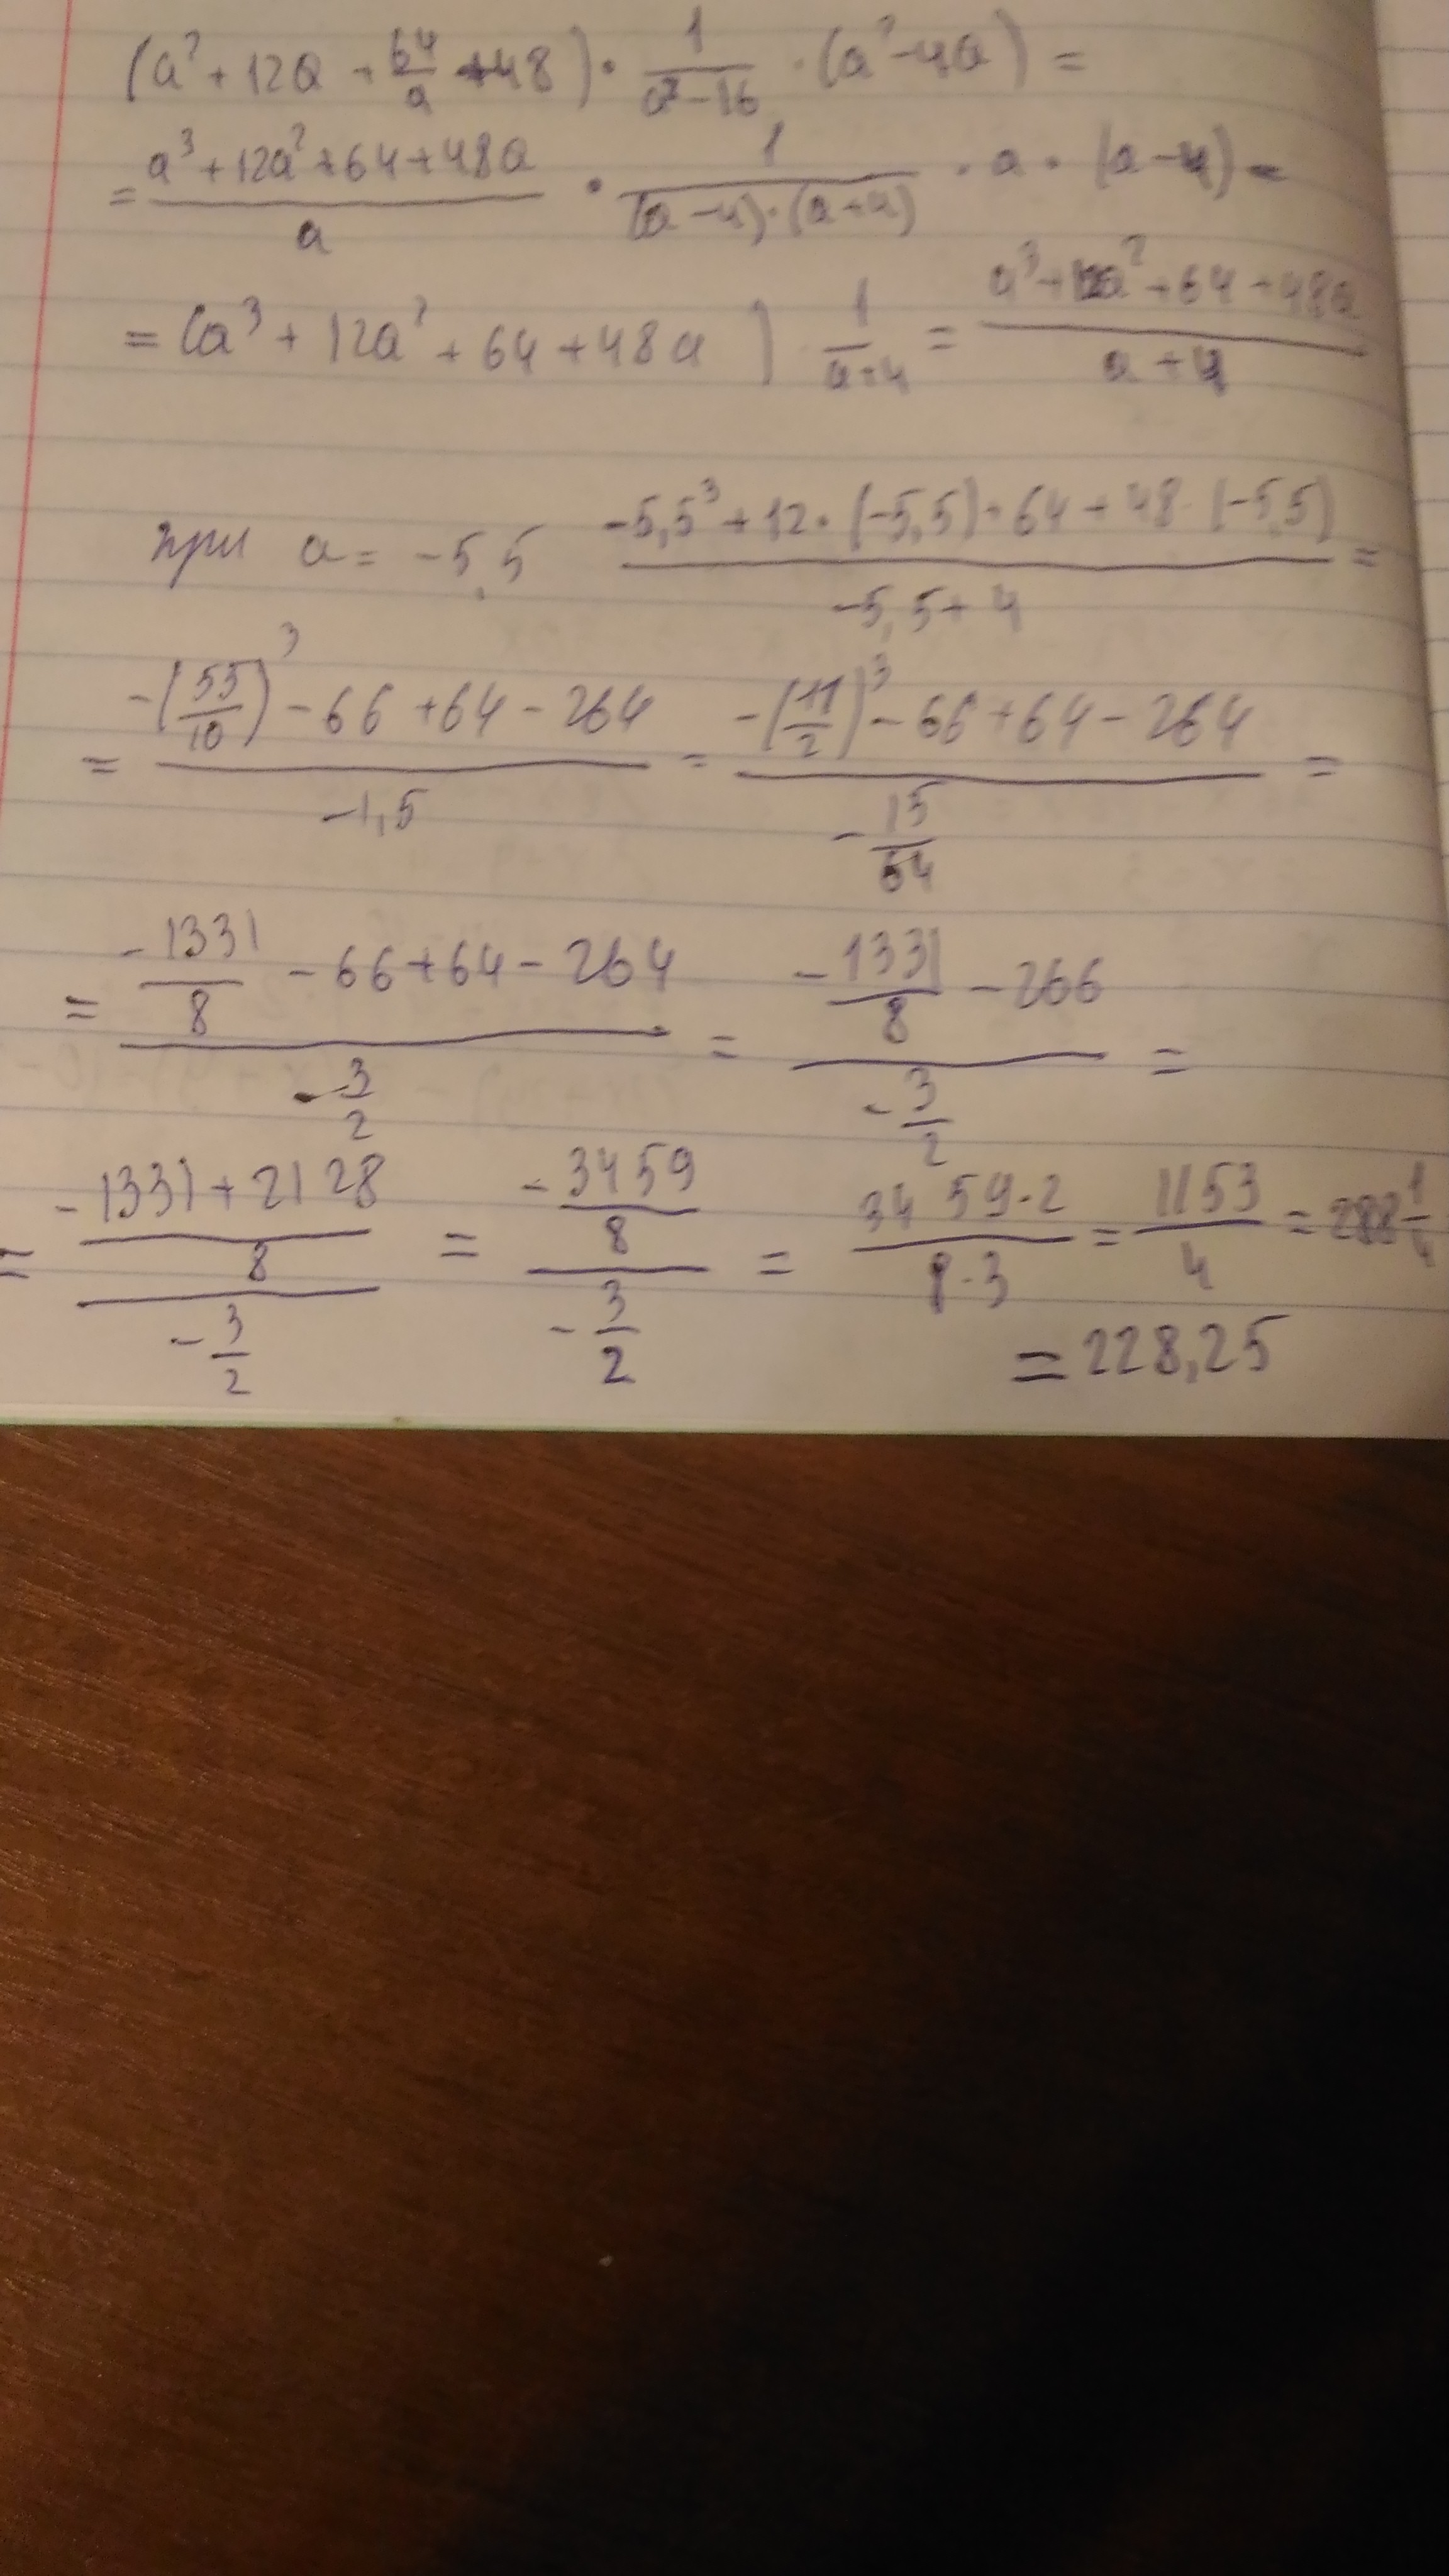 (a² + 12a + 64/a + 48) · 1/(a² - 16) · (a² - 4a) =
= (a³ + 12a² + 64 + 48a)/a · 1/((a - 4) · (a + 4)) · a · (a - 4) =
= (a³ + 12a² + 64 + 48a) · 1/(a + 4) = (a³ + 12a² + 64 + 48a)/(a + 4)
при a = -5,5 (-5,5³ + 12 · (-5,5) + 64 + 48 · (-5,5))/(-5,5 + 4) =
= (-(55/10)³ - 66 + 64 - 264)/(-1,5) = (-(11/2)³ - 66 + 64 - 264)/(-15/64) =
= (-1331/8 - 66 + 64 - 264)/(-3/2) = (-1331/8 - 266)/(-3/2) =
= (-(1331 + 2128)/8)/(-3/2) = (-3459/8)/(-3/2) = (3459 · 2)/(8 · 3) = 1153/4 = 288 1/4
= 228,25